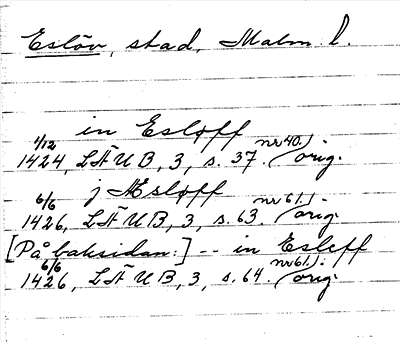 Eslöv, stad, Malm. l.
in Esloff
4/12 1424, LÄUB, 3, s. 37. nr 40. orig.
j Æsloff
6/6 1426, LÄUB, 3, s. 63. nr 61. orig.
[På baksidan:] -- in Esleff
6/6 1426, LÄUB, 3, s. 64. nr 61. orig.